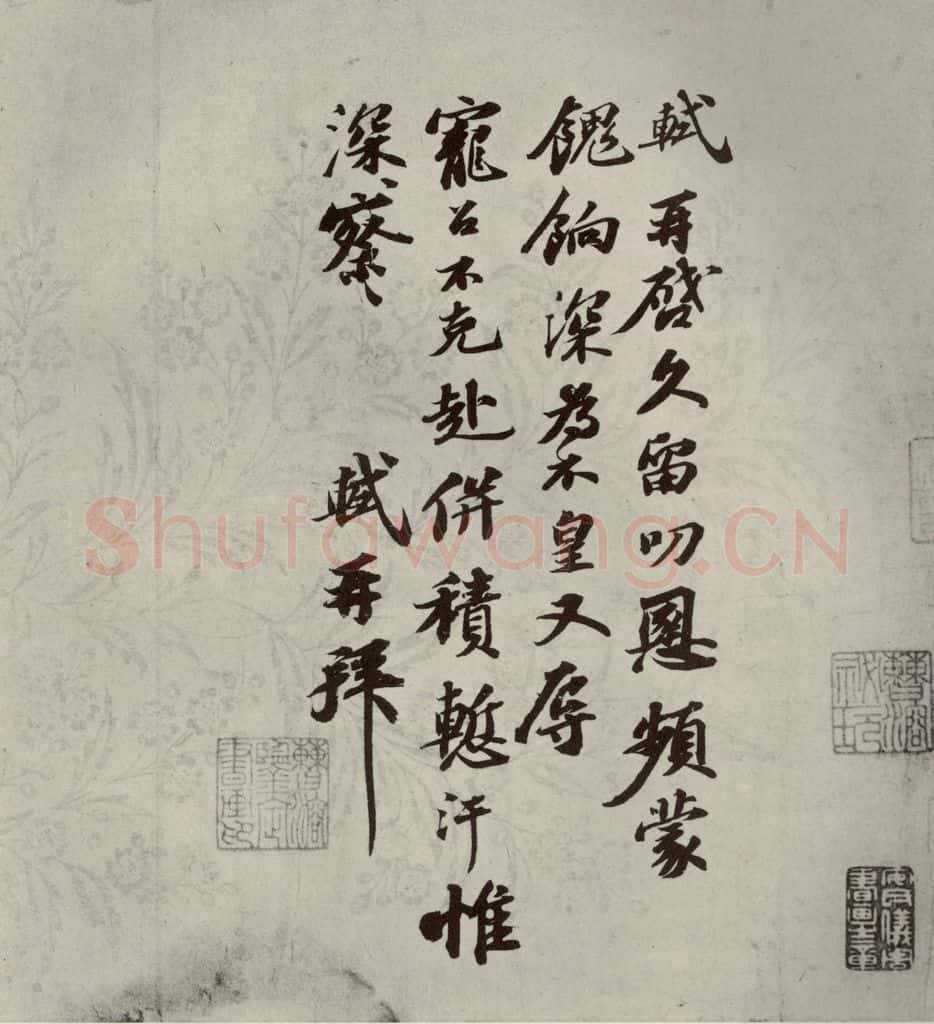 軾再啓久留叨恩頻蒙
餽餉深為不皇又辱
寵召不克赴併積慙汗惟
深察
軾再拜
安儀周書畫之章
Shufawang.CN